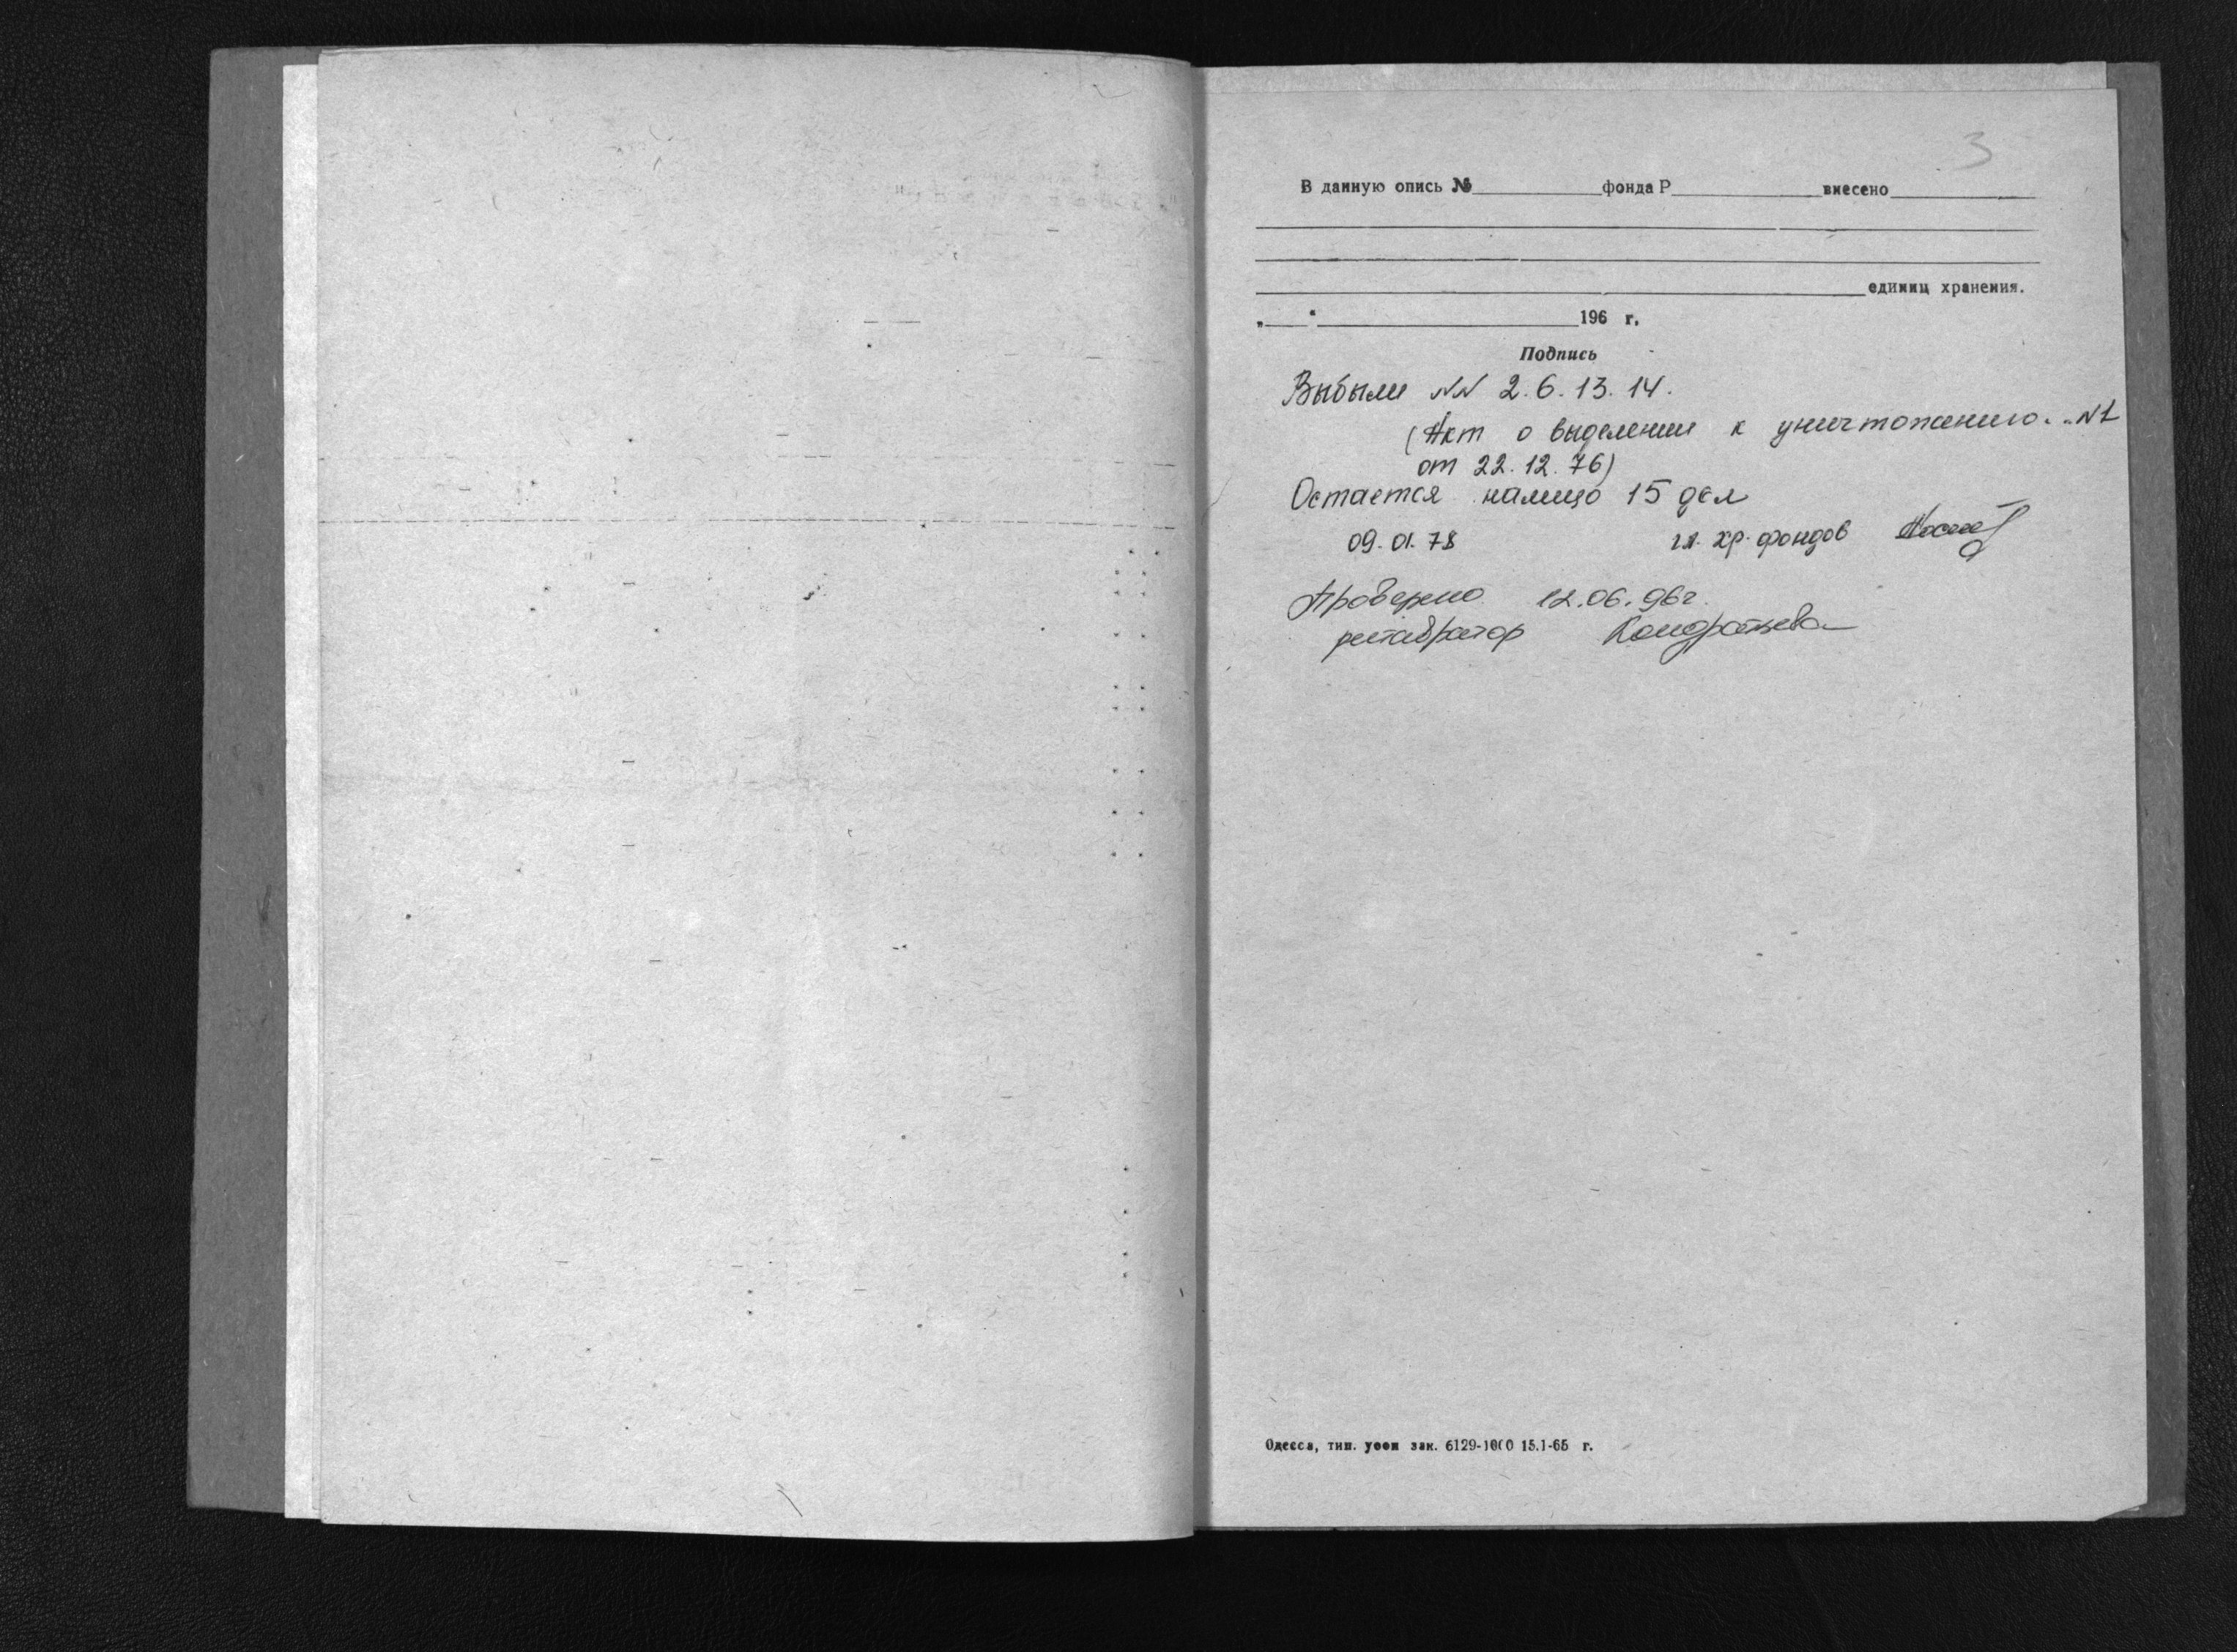 3
В данную опись № фонда Р внесено
единиц хранения.
„ “ 196 г.
Подпись
Выбыли NN 2. 6. 13. 14.
(Акт о выделении к уничтожению.. N1
от 22. 12. 76)
Остается налицо 15 дел
09. 01. 78 гл. хр. фондов
Проверено 12.06.96г.
реставратор Кондратьева
Одесса, тип. зак. 6129-1000 15.1-65 г.